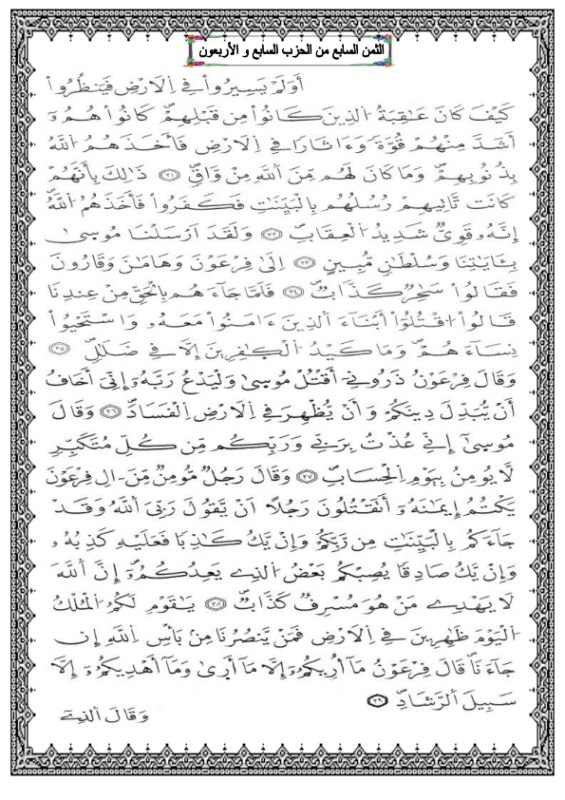 الثمن السابع من الحزب السابع و الأربعون
أَوَلَمْ يَسِيرُواْ فِي اِلَارْضِ فَيَنظُرُواْ
كَيْفَ كَانَ عَٰقِبَةُ الذِينَ كَانُواْ مِن قَبْلِهِمْ كَانُواْ هُمُۥٓ
أَشَدَّ مِنْهُمْ قُوَّةً وَءَاثَارًا فِي اِلَارْضِ فَأَخَذَهُمُ اللَّهُ
بِذُنُوبِهِمْ وَمَا كَانَ لَهُم مِّنَ اَللَّهِ مِنْ وَّاقٍ ٢١ ذَٰلِكَ بِأَنَّهُمْ
كَانَت تَّاتِيهِمْ رُسُلُهُم بِالْبَيِّنَٰتِ فَكَفَرُواْ فَأَخَذَهُمُ اللَّهُ
إِنَّهُۥ قَوِيٌّ شَدِيدُ اُلْعِقَابِ ٢٢ وَلَقَدَ اَرْسَلْنَا مُوسَىٰ
بِـَٔايَٰتِنَا وَسُلْطَٰنٍ مُّبِينٍ ٢٣ اِلَىٰ فِرْعَوْنَ وَهَامَٰنَ وَقَٰرُونَ
فَقَالُواْ سَٰحِرٌ كَذَّابٌ ٢٤ فَلَمَّا جَآءَهُم بِالْحَقِّ مِنْ عِندِنَا
قَالُواْ اُقْتُلُوٓاْ أَبْنَآءَ اَلذِينَ ءَامَنُواْ مَعَهُۥ وَاسْتَحْيُواْ
نِسَآءَهُمْ وَمَا كَيْدُ اُلْكٰ۪فِرِينَ إِلَّا فِي ضَلَٰلٍ ٢٥
وَقَالَ فِرْعَوْنُ ذَرُونِيٓ أَقْتُلْ مُوسَىٰ وَلْيَدْعُ رَبَّهُۥٓ إِنِّيَ أَخَافُ
أَنْ يُّبَدِّلَ دِينَكُمْ وَأَنْ يُّظْهِرَ فِي اِلَارْضِ اِلْفَسَادَ ٢٦ وَقَالَ
مُوسَىٰٓ إِنِّي عُذْتُ بِرَبِّي وَرَبِّكُم مِّن كُلِّ مُتَكَبِّرٍ
لَّا يُومِنُ بِيَوْمِ اِلْحِسَابِ ٢٧ وَقَالَ رَجُلٌ مُّومِنٌ مِّنَ اٰلِ فِرْعَوْنَ
يَكْتُمُ إِيمَٰنَهُۥٓ أَتَقْتُلُونَ رَجُلًا اَنْ يَّقُولَ رَبِّيَ اَللَّهُ وَقَدْ
جَآءَكُم بِالْبَيِّنَٰتِ مِن رَّبِّكُمْ وَإِنْ يَّكُ كَٰذِبًا فَعَلَيْهِ كَذِبُهُۥ
وَإِنْ يَّكُ صَادِقًا يُصِبْكُم بَعْضُ اُلذِي يَعِدُكُمُۥٓ إِنَّ اَللَّهَ
لَا يَهْدِي مَنْ هُوَ مُسْرِفٌ كَذَّابٌ ٢٨ يَٰقَوْمِ لَكُمُ اُلْمُلْكُ
اُلْيَوْمَ ظَٰهِرِينَ فِي اِلَارْضِ فَمَنْ يَّنصُرُنَا مِنۢ بَأْسِ اِللَّهِ إِن
جَآءَنَا قَالَ فِرْعَوْنُ مَآ أُرِيكُمُۥٓ إِلَّا مَآ أَرَىٰ وَمَآ أَهْدِيكُمُۥٓ إِلَّا
سَبِيلَ اَلرَّشَادِ ٢٩
وَقَالَ اَلذِيٓ